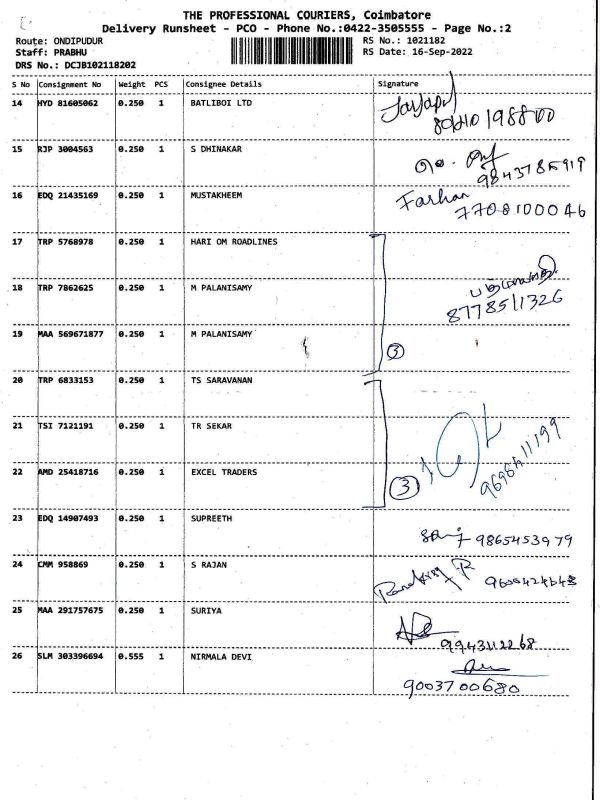 THE PROFESSIONAL COURIERS, Coimbatore
Delivery Runsheet - PCO - Phone No.:0422-3505555 - Page No.:2
Route: ONDIPUDUR
RS No.: 1021182
Staff: PRABHU
RS Date: 16-Sep-2022
DRS No.: DCJB102118202
S No Consignment No Weight PCS Consignee Details Signature
14 HYD 81605062 0.250 1 BATLIBOI LTD
15 RJP 3004563 0.250 1 S DHINAKAR
9843785919
16 EDQ 21435169 0.250 1 MUSTAKHEEM Farhan
7708100046
17 TRP 5768978 0.250 1 HARI OM ROADLINES
18 TRP 7862625 0.250 1 M PALANISAMY
8778511326
19 MAA 569671877 0.250 1 M PALANISAMY
3
20 TRP 6833153 0.250 1 TS SARAVANAN
21 TSI 7121191 0.250 1 TR SEKAR
22 AMD 25418716 0.250 1 EXCEL TRADERS
3
23 EDQ 14907493 0.250 1 SUPREETH
9865453979
24 CMM 958869 0.250 1 S RAJAN
25 MAA 291757675 0.250 1 SURIYA
9943112268
26 SLM 303396694 0.555 1 NIRMALA DEVI
9003700680